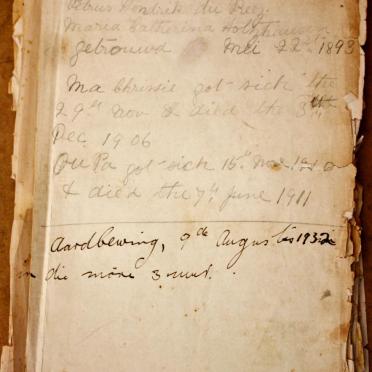 Petrus Hendrik du Preez
Maria Catherina Holtzhausen
getrouwd Mei 22ste 1893
Ma Chrissie got sick the
29th Nov & died the 3rd
Dec. 1906
Oupa got sick 15th Nov. 1910
& died the 7th June 1911
Aardbewing, 9de Augustus 1932
in die môre 3 uur.